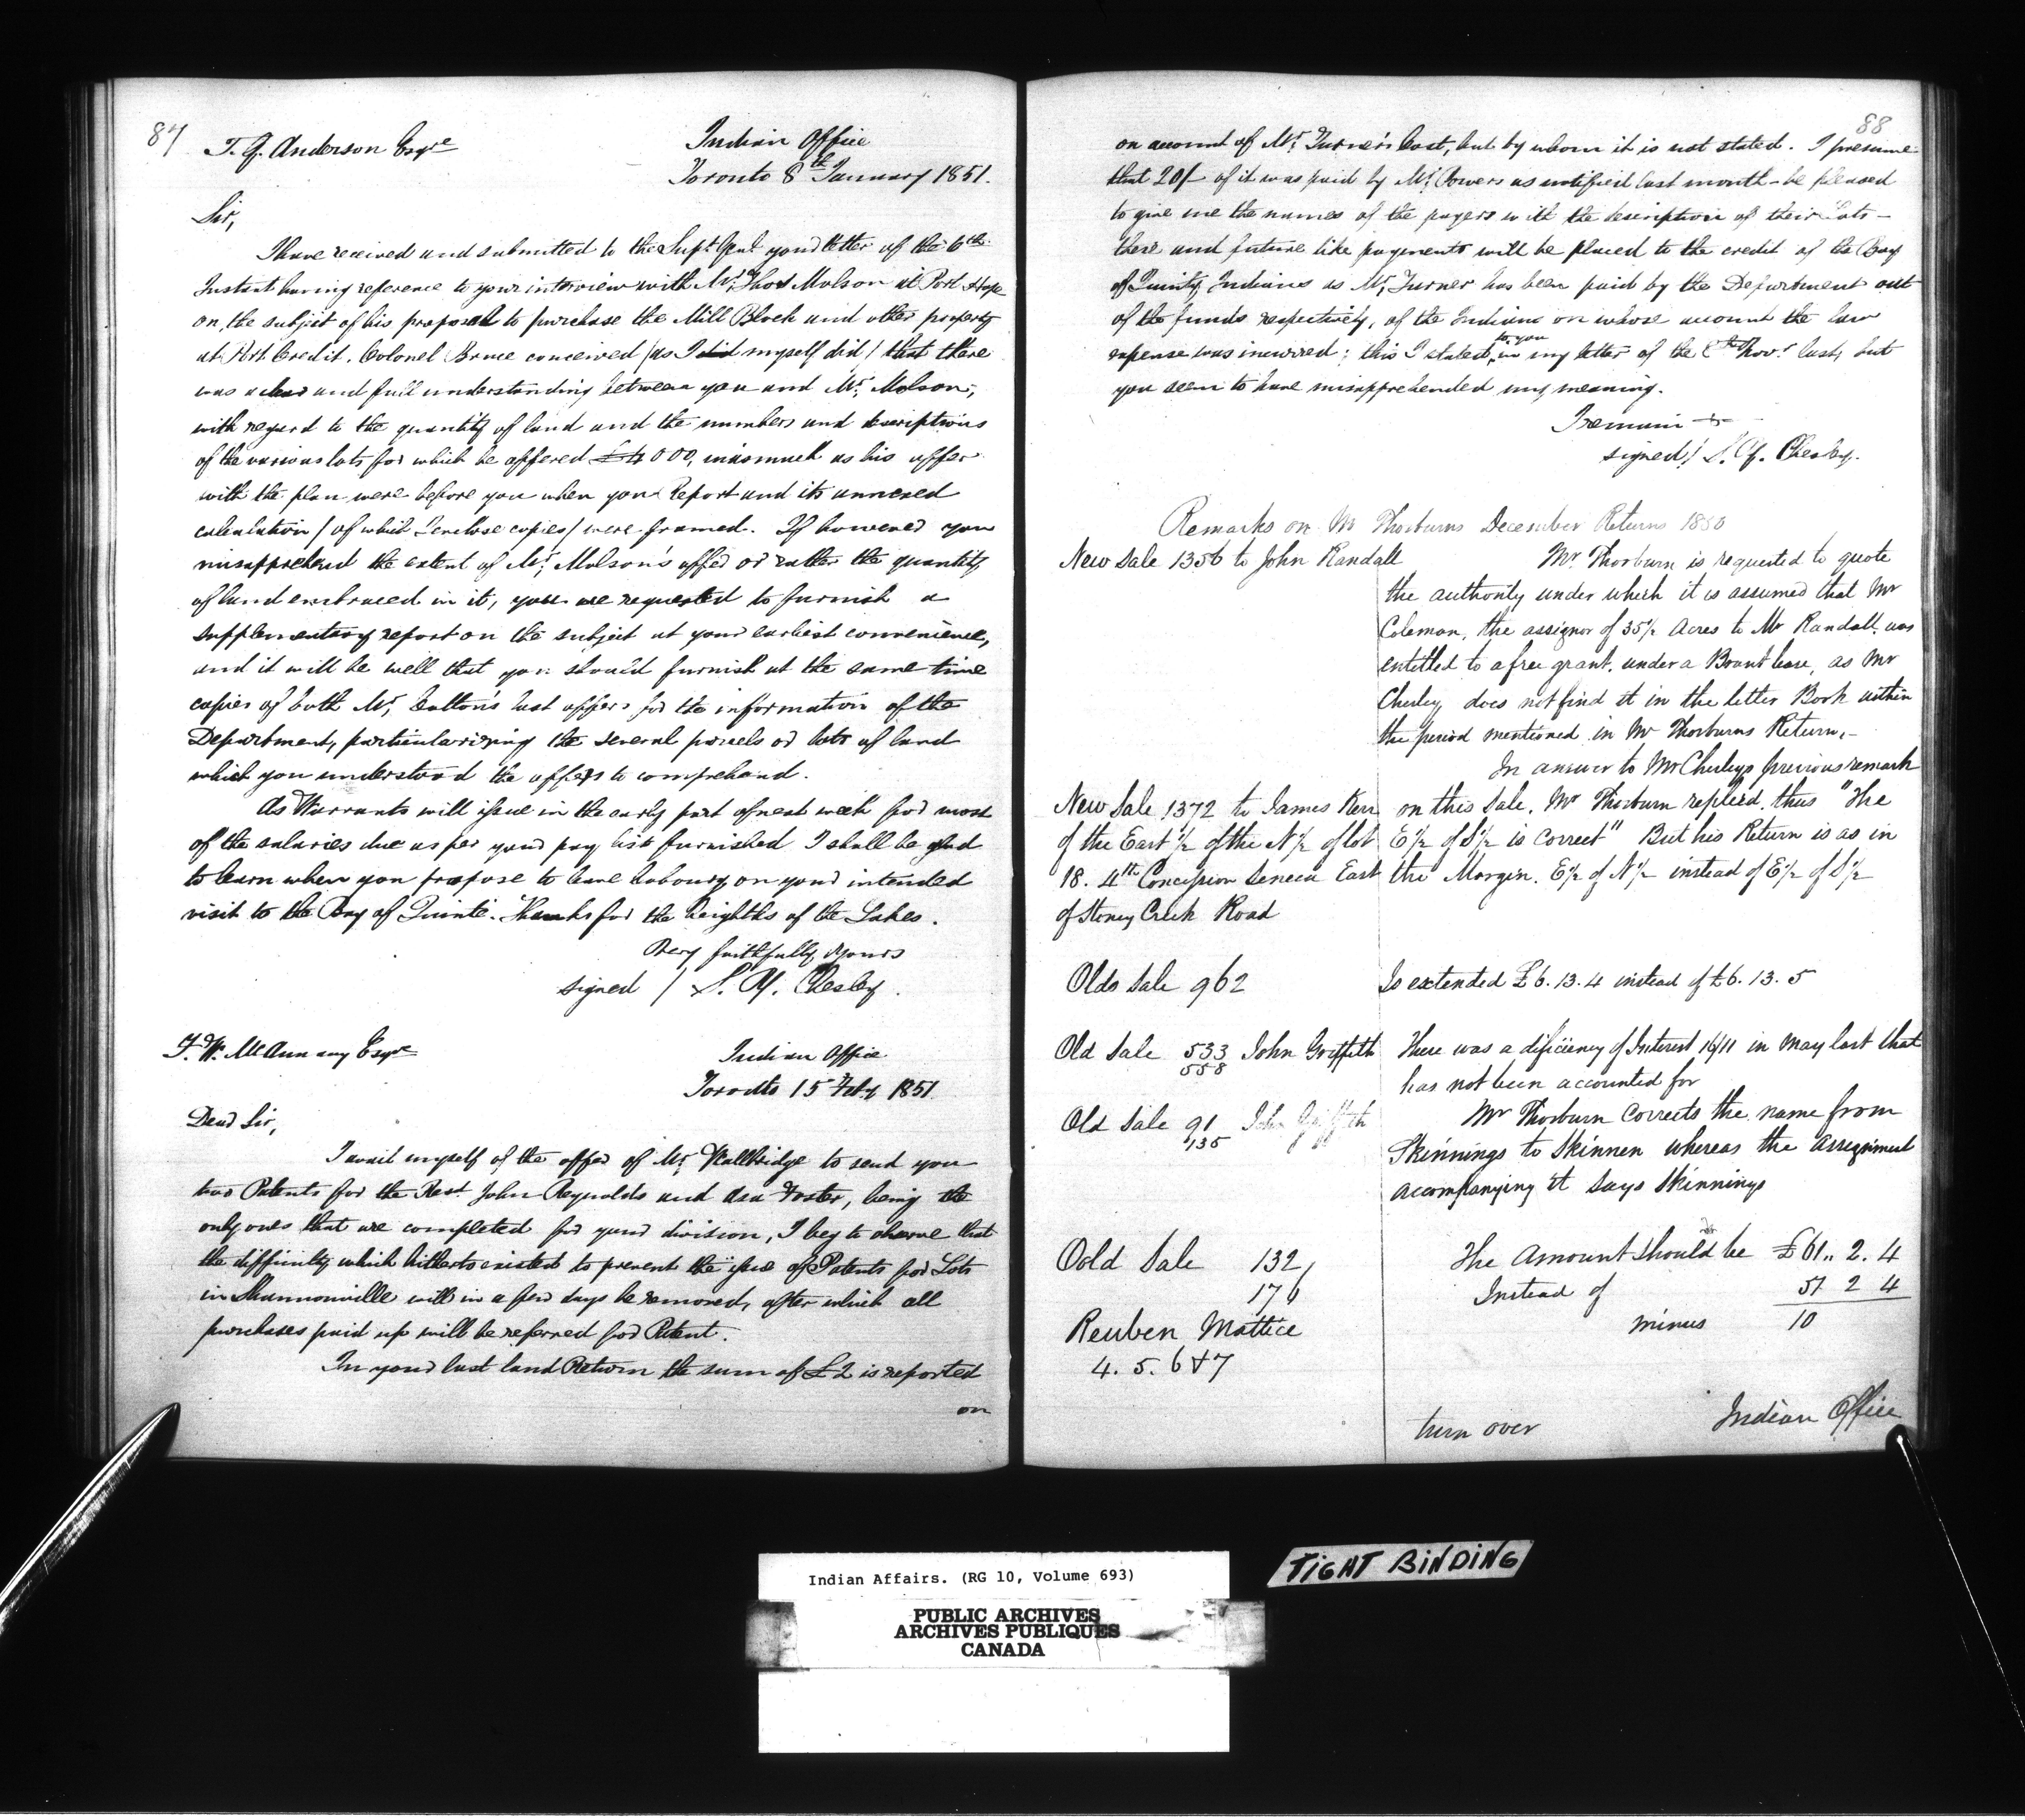 87
T. G. Anderson Esqre
Indian Office
Toronto 8th January 1851.
Sir,
I have received and submitted to the Supt Genl your letter of the 6th
Instant having reference to your interview with Mr Thos Molson at Port Hope
on, the subject of his proposal to purchase the Mill Block and other property
at Port Credit. Colonel Bruce conceived (as I did myself did) that there
was a clear and full understanding between you and Mr, Molson,
with regard to the quantity of land and the numbers and descriptions
of the various lots for which he offered £4000, inasmuch as his offer
with the plan were before you when your Report and its annexed
calculation / of which I enclose copies / were framed. If however you
misapprehend the extent of Mr, Molson's offer or rather the quantity
of land embraced in it, you are requested to furnish a
supplementary report on the subject at your earliest convenience,
and it will be well that you should furnish at the same time
copies of both Mr, Cotton's last offers for the information of the
Department, particularizing the several parcels or lots of land
which you understood the offers to comprehend.
As Warrants will issue in the early part of next week for most
of the salaries due as per your pay list furnished I shall be glad
to learn when you propose to leave Cobourg on your intended
visit to the Bay of Quinté. Thanks for the heighths of the Lakes.
Very faithfully Yours
signed / S. Y. Chesley.
T. W. McAnnany Esqre
Indian Office
Toronto 15 Feby 1851
Dear Sir,
I avail myself of the offer of Mr, Wallbridge to send you
two Patents for the Revd John Reynolds and Asa Foster, being the
only ones that are completed for your division, I beg to observe that
the difficulty which hitherto existed to prevent the issue of Patents for Lots
in Shannonville will in a few days be removed, after which all
purchases paid up will be referred for Patent.
In your last land Return the sum of £2 is reported
on
88
on account of Mr, Turner's Cost, but by whom it is not stated. I presume
that 20/- of it was paid by Mr, Powers as notified last month - be pleased
to give me the names of the payers with the description of their Lots -
these and future like payments will be placed to the credit of the Bay
of Quinty Indians as Mr, Turner has been paid by the Department out
of the funds respectively, of the Indians on whose account the law
to you
expense was incurred; this I stated in my letter of the Novr last, but
you seem to have misapprehended my meaning.
I remain
signed / S. Y. Chesley.
Remarks on Mr Thorburns December Returns 1850
New Sale 1356 to John Randall
Mr Thorburn is requested to quote
the authority under which it is assumed that Mr
Coleman, the assignor of 35½ Acres to Mr Randall, was
entitled to a free grant, under a Brant lease, as Mr
Chesley does not find it in the letter Book within
the period mentioned in Mr Thorburns Return,-
In answer to Mr Chesleys previous remark
New Sale 1372 to James Kerr on this Sale, Mr Thorburn replied, thus "The
of the East ½ of the N½ of lot E½ of S½ is correct" But his Return is as in
18. 4th Concession Seneca East the Margin. E½ of N½ instead of E½ of S½
of Stoney Creek Road
Olds Sale 962 Is extended £6. 13. 4 instead of £6. 13. 5
Old Sale 533 John Griffith There was a deficiency of Interest 16/11 in May last that
558
has not been accounted for
Old Sale 91 John Griffith Mr Thorburn corrects the name from
135
Skinnings to Skinnen whereas the assignment
accompanying it says Skinnings
Oold Sale 132 The Amount should be £61.. 2. 4
176 Instead of 51 2 4
minus 10
Reuben Mattice
4. 5. 6 & 7
turn over Indian Office
Indian Affairs. (RG 10, Volume 693)
PUBLIC ARCHIVES
ARCHIVES PUBLIQUES
CANADA
TIGHT BINDING